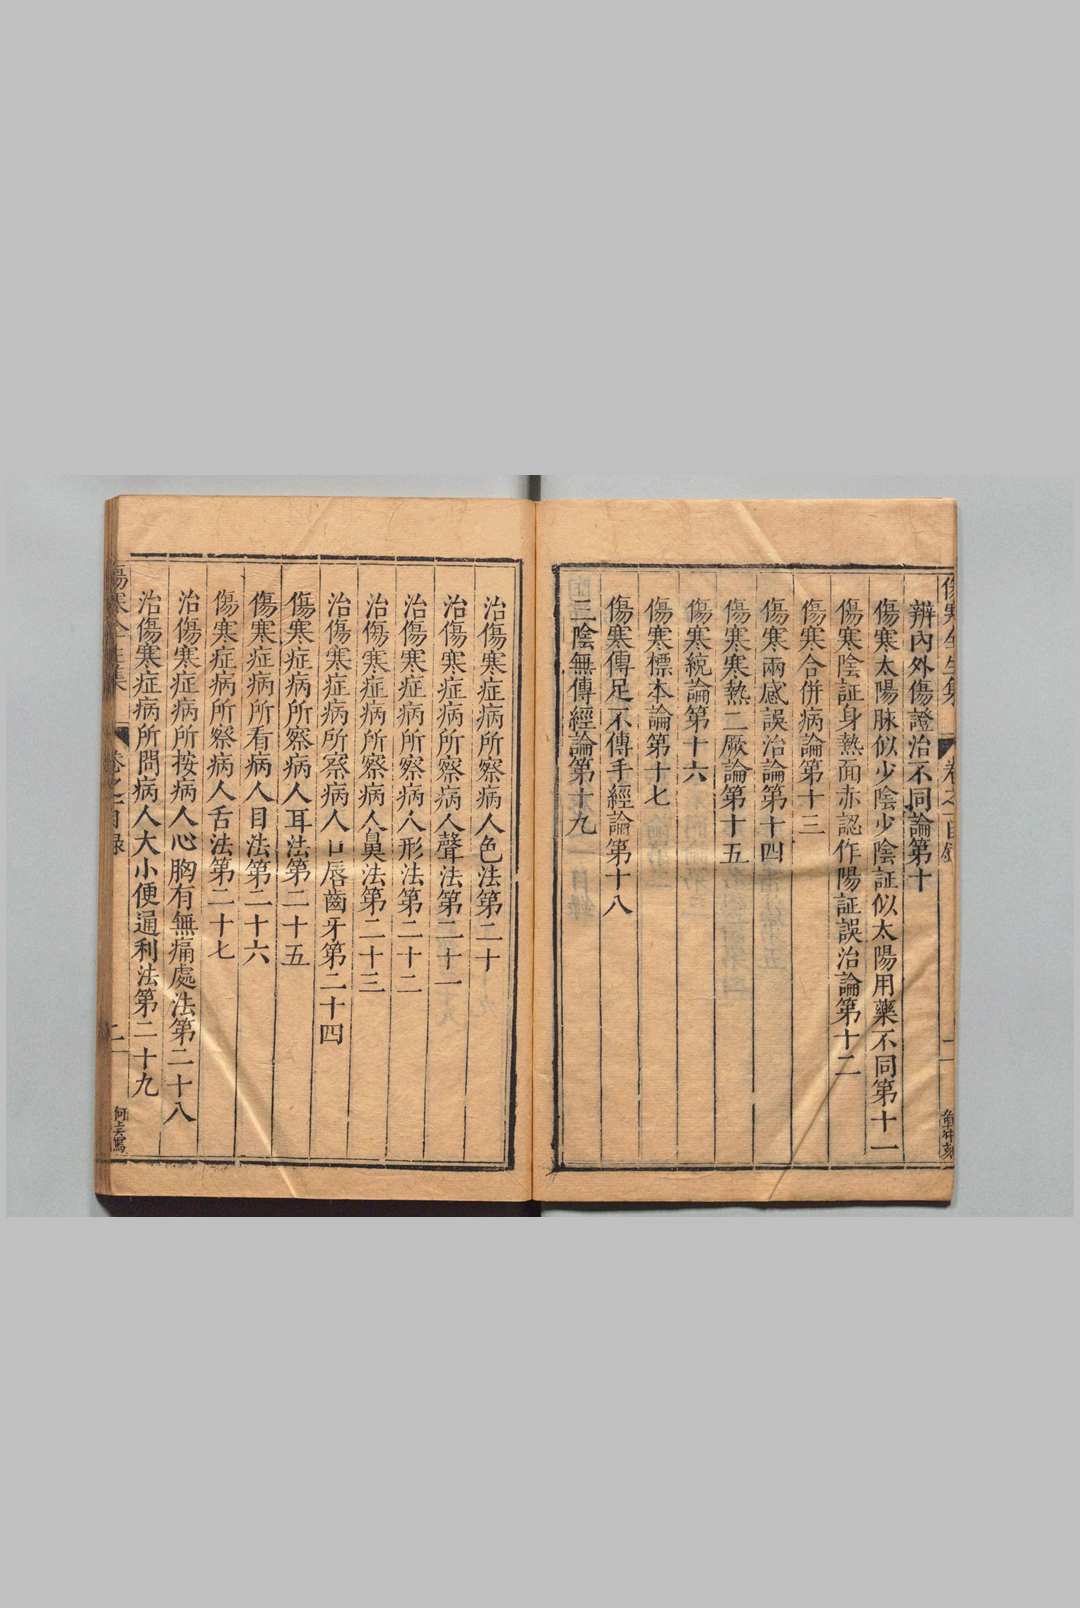 辯內外傷證治不同論第十
傷寒太陽脉似少陰少陰証似太陽用藥不同第十一
傷寒陰証身熱面赤認作陽証誤治論第十二
傷寒合併病論第十三
傷寒兩感誤治論第十四
傷寒寒熱二厥論第十五
傷寒統論第十六
傷寒標本論第十七
傷寒傳足不傳手經論第十八
三陰無傳經論第十九
治傷寒症病所察病人色法第二十
治傷寒症病所察病人聲法第二十一
治傷寒症病所察病人形法第二十二
治傷寒症病所察病人鼻法第二十三
治傷寒症病所察病人口唇齒牙第二十四
傷寒症病所察病人耳法第二十五
傷寒症病所看病人目法第二十六
傷寒症病所察病人舌法第二十七
治傷寒症病所按病人心胸有無痛處法第二十八
治傷寒症病所問病人大小便通利法第二十九
傷寒全生集
卷之一目錄
二